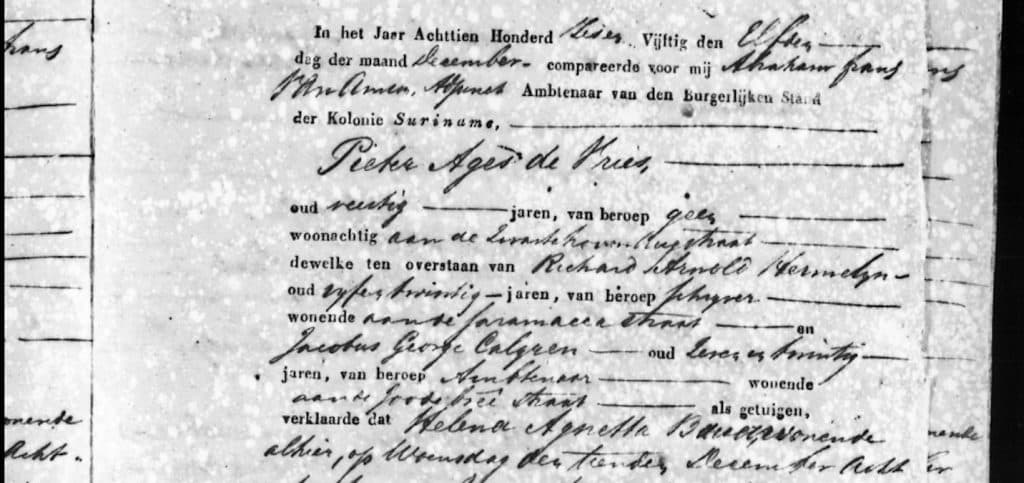 In het Jaar Achttien Honderd Zesen Vijftig den Elfden
dag der maand December compareerde voor mij Abraham frans
Van Amen, Adjunct Ambtenaar van den Burgerlijken Stand
der Kolonie Suriname,
Pieter Ages de Vries,
oud veertig jaren, van beroep geen
woonachtig aan de Zwartehovenbrugstraat
dewelke ten overstaan van Richard Arnold Hermelyn
oud vyfentwintig jaren, van beroep schryver
wonende aan de Saramacca straat en
Jacobus George Calgren oud Zeven en twintig
jaren, van beroep Ambtenaar wonende
aan de Joodebree straat als getuigen,
verklaarde dat Helena Agnetta wonende
alhier, op Woensdag den tienden December Acht